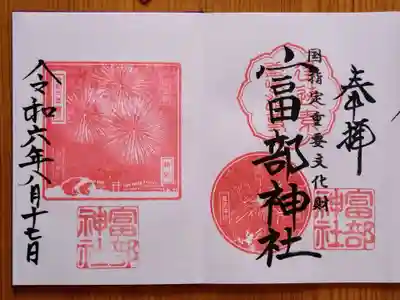 奉拝
国指定重要文化財
富部神社
富部
神社
令和六年八月十七日
富部
神社